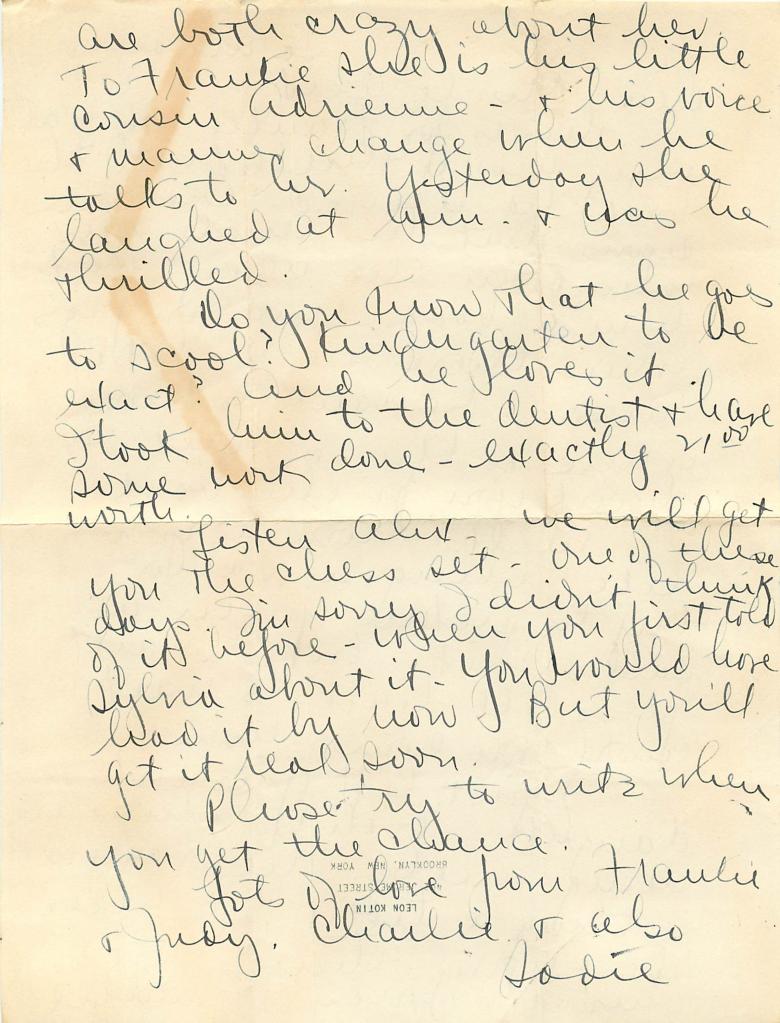 are both crazy about her.
To Frankie she is his little
cousin Adrienne - & his voice
& manner change when he
talks to her. Yesterday she
laughed at him. & was he
thrilled.
Do you know that he goes
to scool? Kindergarten to be
exact? And he loves it
I took him to the dentist & have
some work done - exactly 21.00
worth.
Listen Alex - we will get
you the chess set - one of these
days. I'm sorry I didn't think
of it before - when you first told
Sylvia about it - you would have
had it by now. But you'll
get it real soon.
Please try to write when
you get the chance.
Lots of love from Frankie
& Judy. Charlie & also
Sadie
LEON KOTIN
JEROME STREET
BROOKLYN, NEW YORK